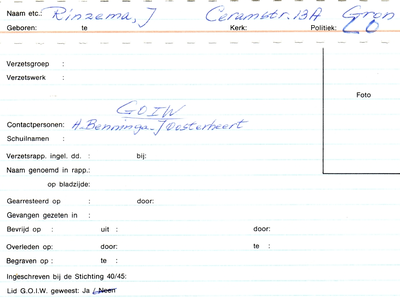 Naam etc.: Rinzema, J Ceramstr. 13A Gron
Geboren: te Kerk: Politiek: LO
Verzetsgroep :
Verzetswerk :
Foto
GOIW
Contactpersonen: H. Benninga - J Oosterbeert
Schuilnamen :
Verzetsrapp. ingel. dd. : bij:
Naam genoemd in rapp.:
op bladzijde:
Gearresteerd op : door:
Gevangen gezeten in :
Bevrijd op : uit : door:
Overleden op: door: te :
Begraven op : te :
Ingeschreven bij de Stichting 40/45:
Lid G.O.I.W. geweest: Ja / Neen